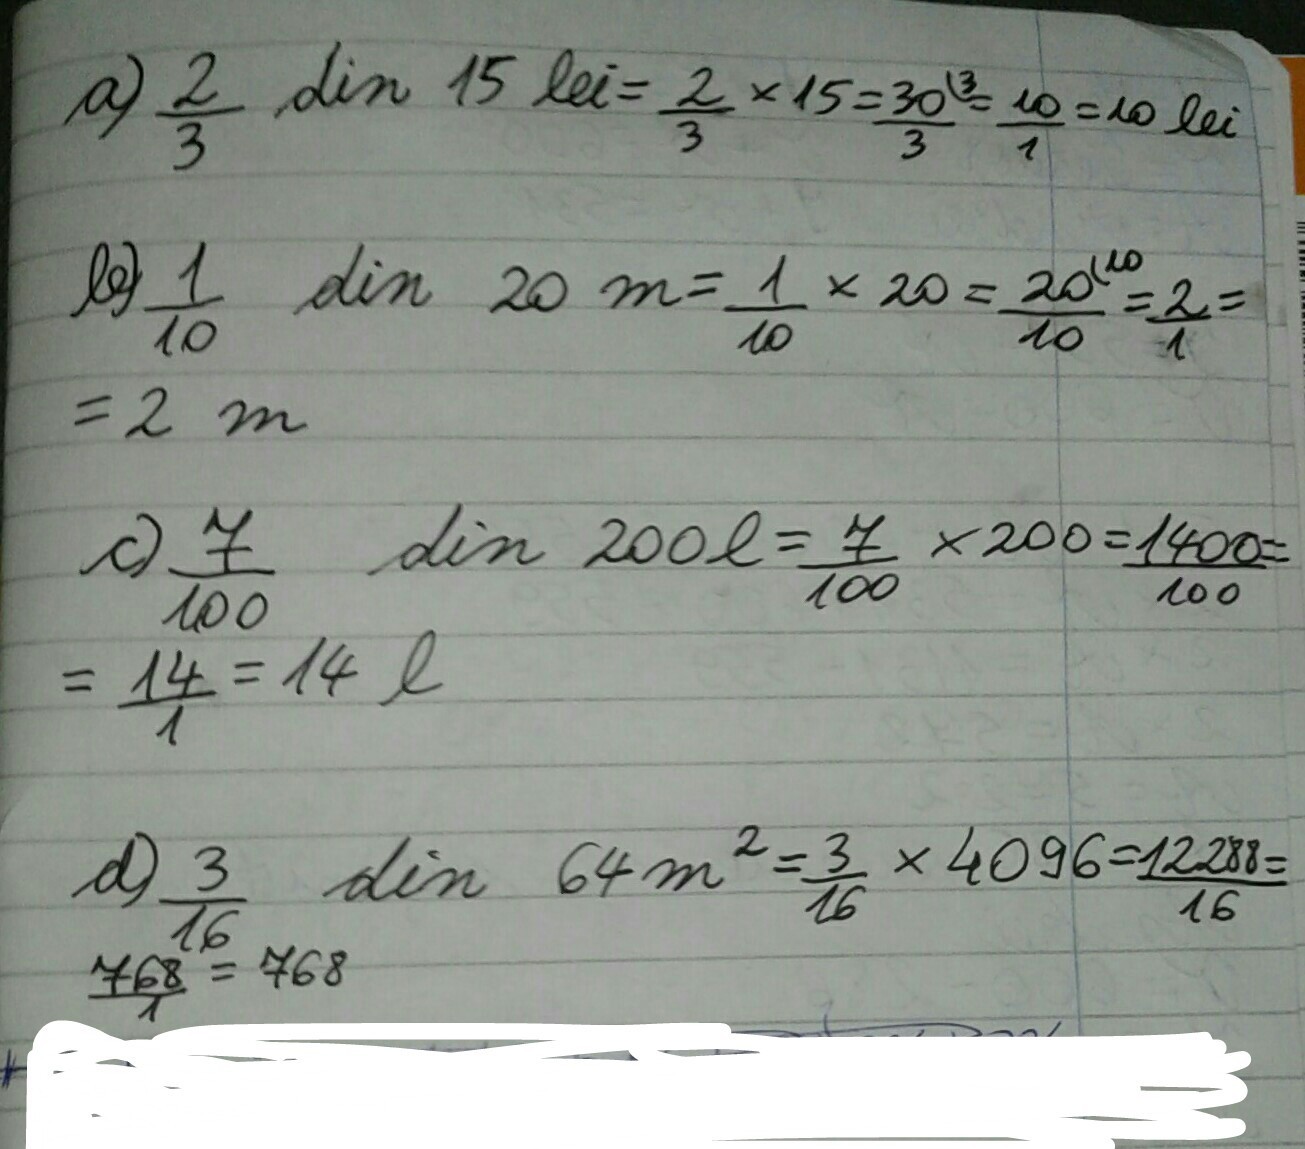 a) 2/3 din 15 lei = 2/3 × 15 = 30/3 (3 = 10/1 = 10 lei
b) 1/10 din 20 m = 1/10 × 20 = 20/10 (10 = 2/1 =
= 2 m
c) 7/100 din 200 l = 7/100 × 200 = 1400/100 =
= 14/1 = 14 l
d) 3/16 din 64 m² = 3/16 × 4096 = 12288/16 =
768/1 = 768